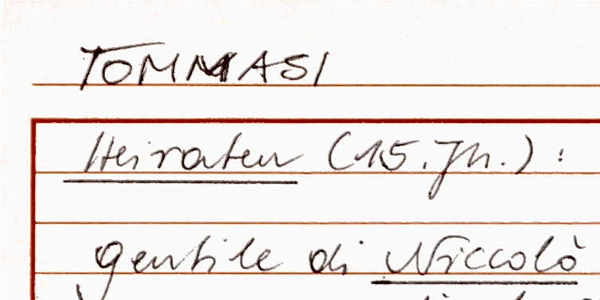 TOMMASI
Heiraten (15. Jh.) :
gentile di Niccolò